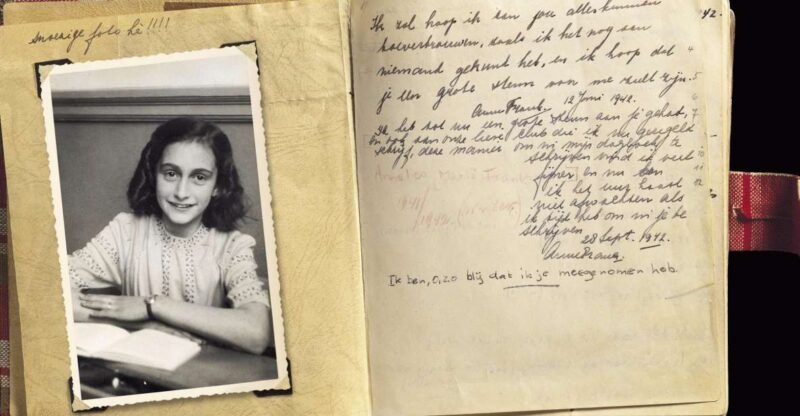 Snoezige foto hè!!!!
Ik zal hoop ik aan jou alles kunnen
toevertrouwen, zoals ik het nog aan
niemand gekund heb, en ik hoop dat
je een grote steun van me zult zijn.
Anne Frank. 12 Juni 1942.
Ik heb tot nu een grote steun aan je gehad,
en ook aan onze lieve club die ik nu geregeld
schrijf, deze manier om in mijn dagboek te
schrijven vind ik veel
fijner en nu kan
ik het uur haast
niet afwachten als
ik tijd heb om in je te
schrijven.
28 Sept. 1942.
Anne Frank.
Ik ben, O, zo blij dat ik je meegenomen heb.
42.
4
5
6
7